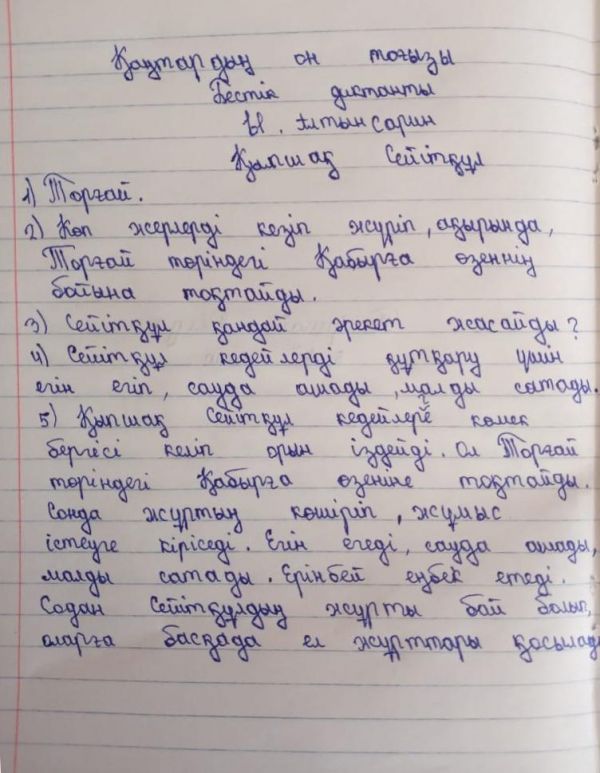 Қаңтардың он тоғызы
Бестік диктанты
Ы. Алтынсарин
Қыпшақ Сейітқұл
1) Торғай.
2) Көп жерлерді кезіп жүріп, ақырында,
Торғай төріндегі Қабырға өзеннің
бойына тоқтайды.
3) Сейітқұл қандай әрекет жасайды?
4) Сейітқұл кедейлерді құтқару үшін
егін егіп, сауда ашады, малды сатады.
5) Қыпшақ Сейітқұл кедейлерге көмек
бергісі келіп орын іздейді. Ол Торғай
төріндегі Қабырға өзеніне тоқтайды.
Сонда жұртын көшіріп, жұмыс
істеуге кіріседі. Егін егеді, сауда ашады,
малды сатады. Ерінбей еңбек етеді.
Содан Сейітқұлдың жұрты бай болып,
оларға басқада ел жұрттары қосылады